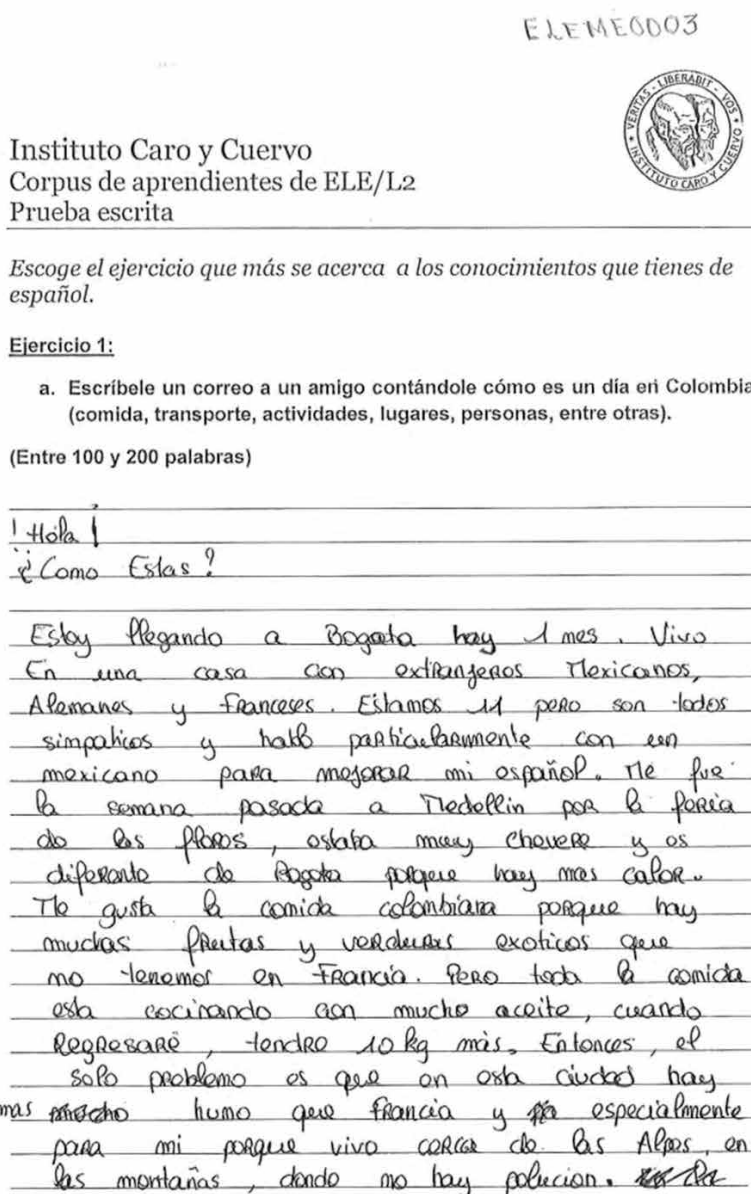 ELEME0003
VERITAS · LIBERABIT · VOS
INSTITUTO CARO Y CUERVO
Instituto Caro y Cuervo
Corpus de aprendientes de ELE/L2
Prueba escrita
Escoge el ejercicio que más se acerca a los conocimientos que tienes de
español.
Ejercicio 1:
a. Escríbele un correo a un amigo contándole cómo es un día en Colombia
(comida, transporte, actividades, lugares, personas, entre otras).
(Entre 100 y 200 palabras)
! Hola ¡
¿ Como Estas ?
Estoy llegando a Bogota hay 1 mes. Vivo
En una casa con extranjeros Mexicanos,
Alemanes y Franceses. Estamos 11 pero son todos
simpaticos y hablo particularmente con un
mexicano para mejorar mi español. Me fue
la semana pasada a Medellin por la feria
de las flores, estaba muy chevere y es
diferente de Bogota porque hay mas calor.
Me gusta la comida colombiana porque hay
muchas frutas y verduras exoticos que
no tenemos en Francia. Pero toda la comida
esta cocinando con mucho aceite, cuando
Regresaré, tendre 10 kg màs. Entonces, el
solo problemo es que en esta ciudad hay
mas humo que Francia y especialmente
para mi porque vivo cerca de las Alpes, en
las montañas, donde no hay polucion.